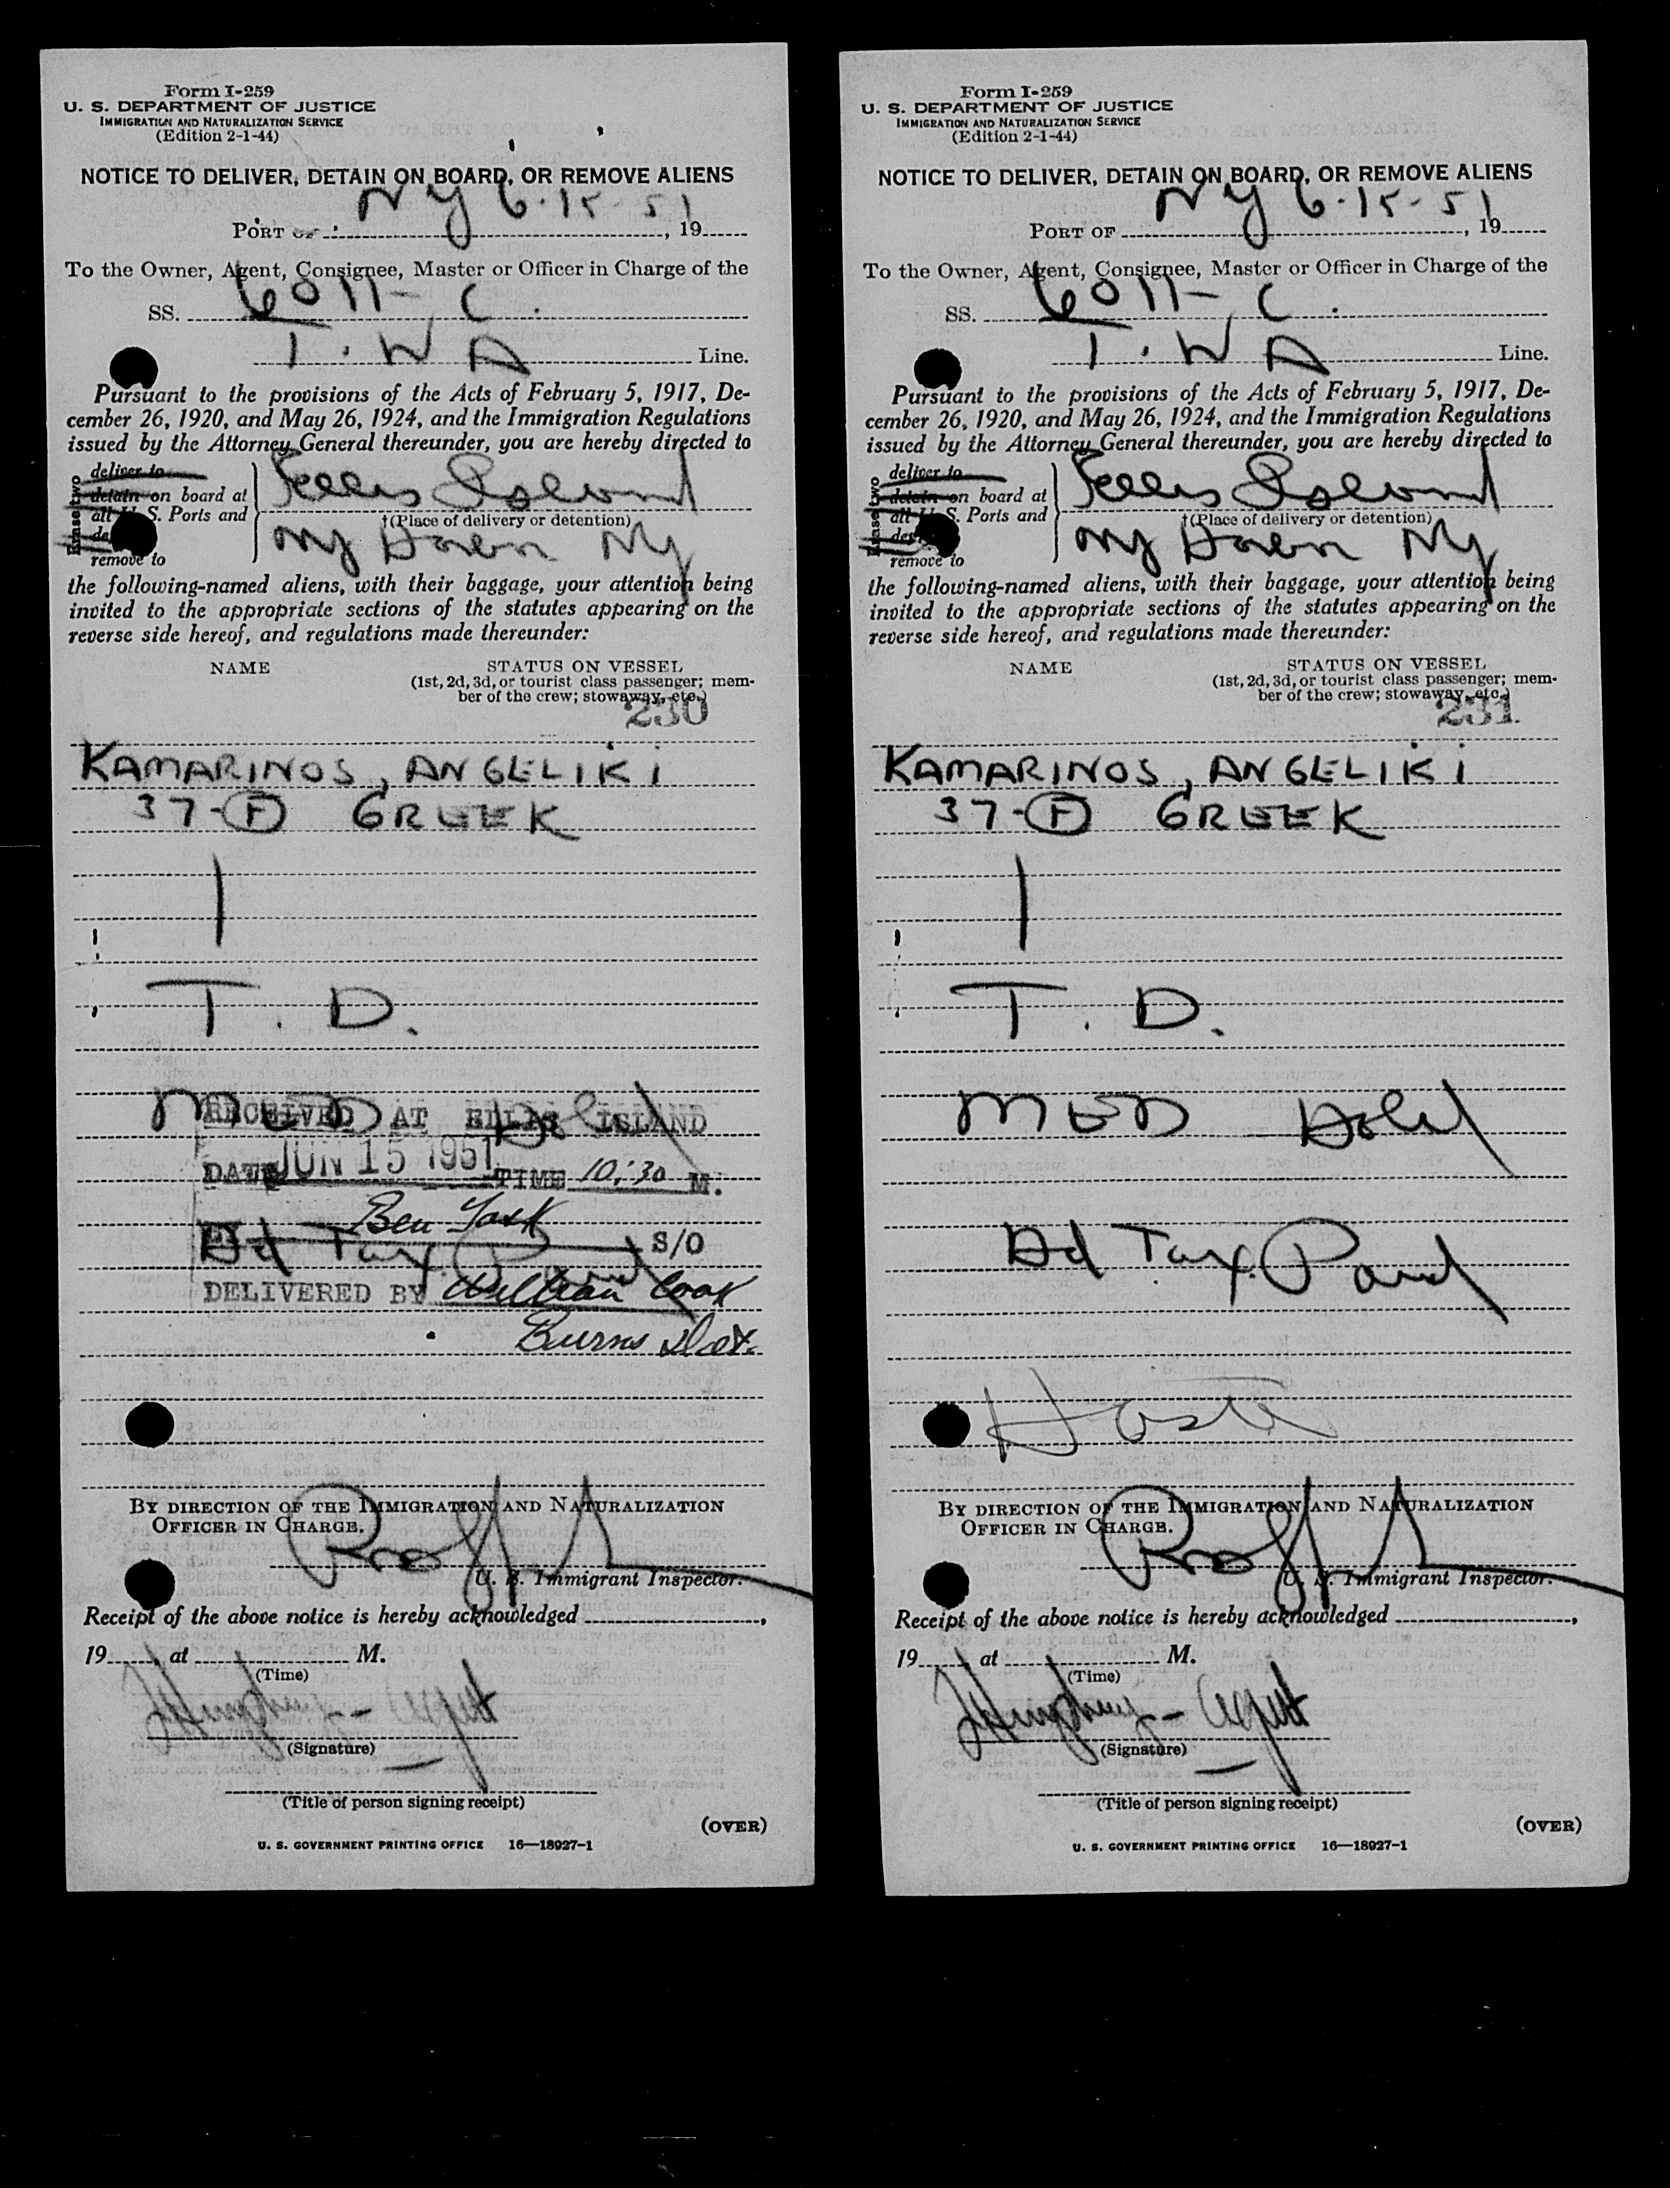 Form I-259
U. S. DEPARTMENT OF JUSTICE
IMMIGRATION AND NATURALIZATION SERVICE
(Edition 2-1-44)
NOTICE TO DELIVER, DETAIN ON BOARD, OR REMOVE ALIENS
PORT OF NY 6-15-51, 19
To the Owner, Agent, Consignee, Master or Officer in Charge of the
SS. 6011-C
T.W A Line.
Pursuant to the provisions of the Acts of February 5, 1917, De-
cember 26, 1920, and May 26, 1924, and the Immigration Regulations
issued by the Attorney General thereunder, you are hereby directed to
Erase two
deliver to
detain on board at
all U. S. Ports and
remove to
Ellis Island
†(Place of delivery or detention)
NY Harbor NY
the following-named aliens, with their baggage, your attention being
invited to the appropriate sections of the statutes appearing on the
reverse side hereof, and regulations made thereunder:
NAME STATUS ON VESSEL
(1st, 2d, 3d, or tourist class passenger; mem-
ber of the crew; stowaway, etc.)
230
KAMARINOS, ANGELIKI
37-F GREEK
1
T. D.
MED Hold
RECEIVED AT ELLIS ISLAND
DATE JUN 15 1951 TIME 10:30 M.
BY Ben York S/O
Hd Tax Paid
DELIVERED BY William Cook
Burns Det.
BY DIRECTION OF THE IMMIGRATION AND NATURALIZATION
OFFICER IN CHARGE.
U. S. Immigrant Inspector.
Receipt of the above notice is hereby acknowledged ,
19 , at M.
(Time)
(Signature)
(Title of person signing receipt)
(OVER)
U. S. GOVERNMENT PRINTING OFFICE 16—18927-1
Form I-259
U. S. DEPARTMENT OF JUSTICE
IMMIGRATION AND NATURALIZATION SERVICE
(Edition 2-1-44)
NOTICE TO DELIVER, DETAIN ON BOARD, OR REMOVE ALIENS
PORT OF NY 6-15-51, 19
To the Owner, Agent, Consignee, Master or Officer in Charge of the
SS. 6011-C
T.W A Line.
Pursuant to the provisions of the Acts of February 5, 1917, De-
cember 26, 1920, and May 26, 1924, and the Immigration Regulations
issued by the Attorney General thereunder, you are hereby directed to
Erase two
deliver to
detain on board at
all U. S. Ports and
remove to
Ellis Island
†(Place of delivery or detention)
NY Harbor NY
the following-named aliens, with their baggage, your attention being
invited to the appropriate sections of the statutes appearing on the
reverse side hereof, and regulations made thereunder:
NAME STATUS ON VESSEL
(1st, 2d, 3d, or tourist class passenger; mem-
ber of the crew; stowaway, etc.)
231
KAMARINOS, ANGELIKI
37-F GREEK
1
T. D.
MED Hold
Hd Tax Paid
BY DIRECTION OF THE IMMIGRATION AND NATURALIZATION
OFFICER IN CHARGE.
U. S. Immigrant Inspector.
Receipt of the above notice is hereby acknowledged ,
19 , at M.
(Time)
(Signature)
(Title of person signing receipt)
(OVER)
U. S. GOVERNMENT PRINTING OFFICE 16—18927-1